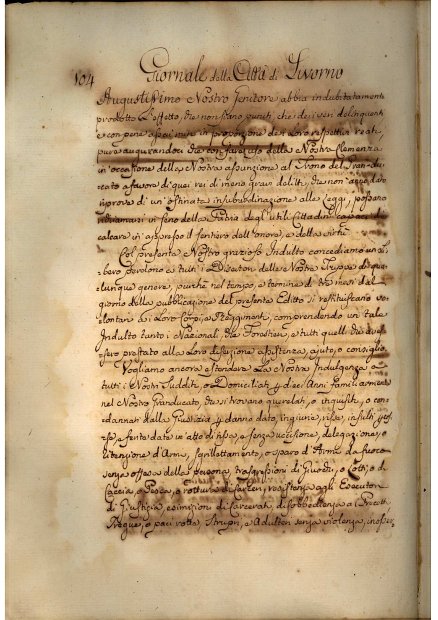 104 Giornale della Città di Livorno
Augustissimo Nostro Genitore abbia indubitatamente
prodotto l'effetto, che non siano puniti, che i veri delinquenti
e con pene a pari in proporzione dei Loro respettivi reati,
pure augurandoci che con far uso della Nostra Clemenza
in occasione della Nostra assunzione al Trono del Gran-Du-
cato a favore di quei rei di meno gravi delitti, che non
riprove di un'ostinata insubordinazione alle Leggi, possano
richiamarsi in seno della Patria degl'utili Cittadini capaci di
calcare in appresso il sentiero dell'onore, e della virtù.
Col presente Nostro grazioso Indulto concediamo un li-
bero perdono a tutti i Disertori delle Nostre Truppe di qua-
lunque genere, purchè nel tempo, e termine di tre mesi dal
giorno della pubblicazione del presente Editto si restituiscano vo-
lontari ai Loro Corpi, e Reggimenti, comprendendo un tale
Indulto tanto i Nazionali, che Forestieri, e tutti quelli che aves-
sero prestato alla Loro diserzione assistenza, ajuto, o consiglio.
Vogliamo ancora estendere La Nostra Indulgenza a
tutti i Nostri Sudditi, o Domiciliati p dieci Anni familiarmente
nel Nostro Granducato, che si trovano querelati, o inquisiti, o con-
dannati dalla Giustizia p danno dato, ingiurie, risse, insulti
e ferite date in atto di rissa, e senza uccisione, delegazione, o
ritenzione d'Armi, spillattamento, o sparo d'Arme da fuoco
senza offesa della persona, trasgressioni di Giuochi, o Lotti, o di
Caccia, o Pesca, o rottura di Carceri, resistenza agli Esecutori
di Giustizia, esimizioni di Carcerati, disobbedienza ai Precetti,
Tregue, o paci rotte, Strupri, e Adulteri senza violenza,